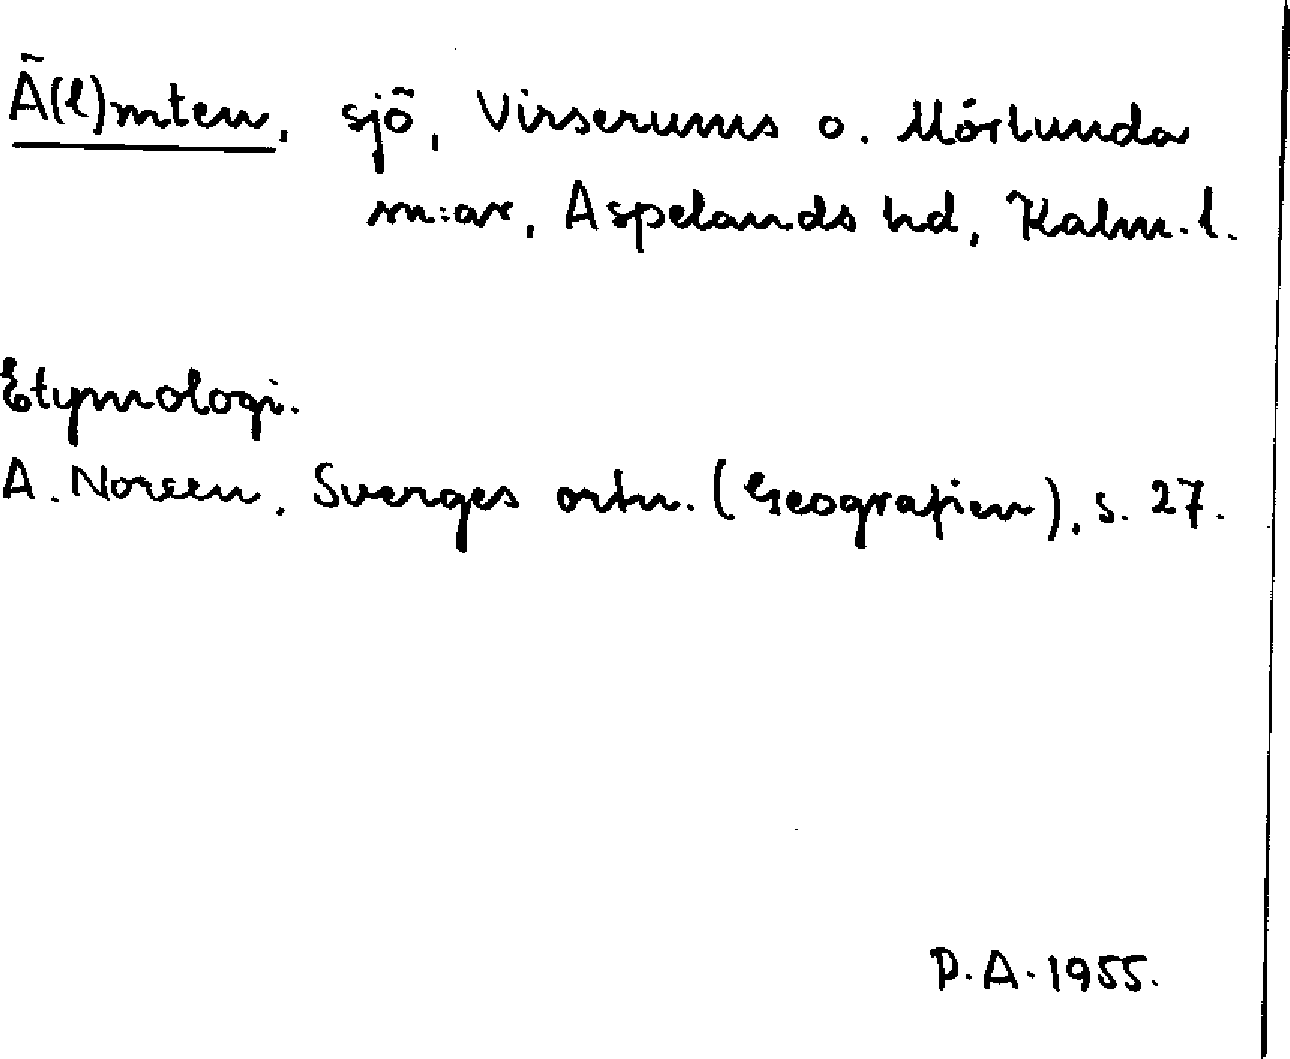 Ä(l)mten, sjö, Virserums o. Mörlunda
sn:ar, Aspelands hd, Kalm. l.
Etymologi.
A. Noreen, Sverges ortn. (Geografien), s. 27.
P.A. 1955.